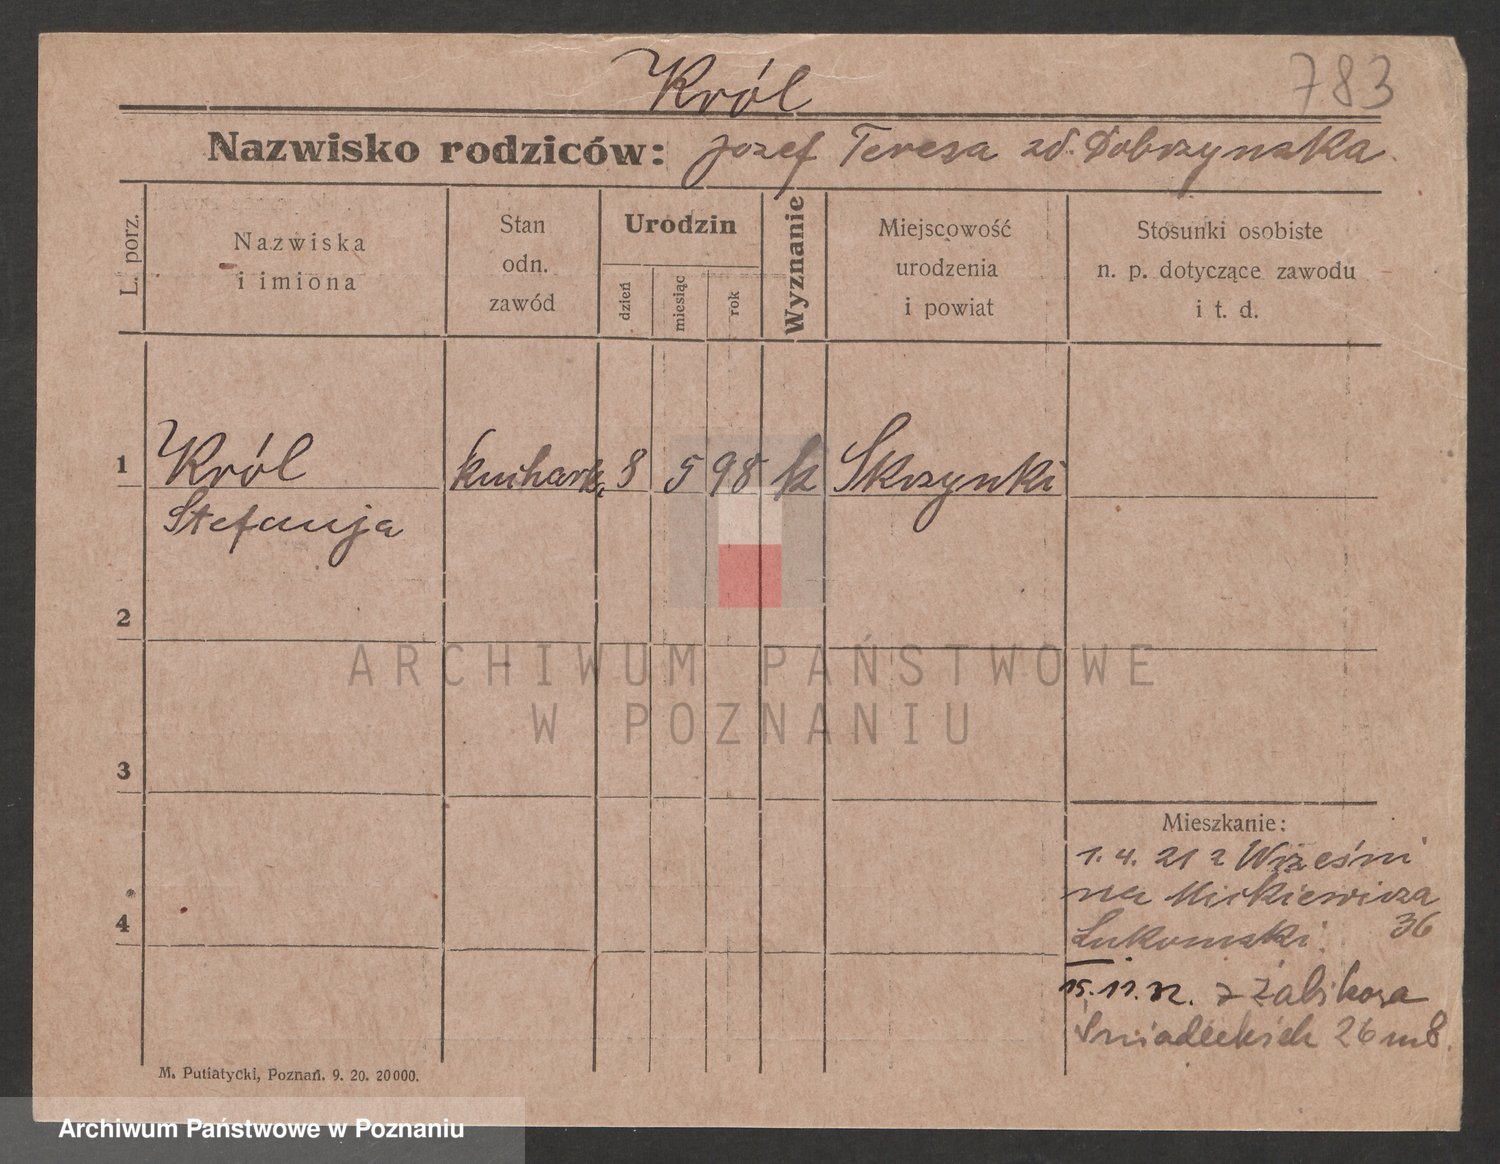 Król
783
Nazwisko rodziców: Jozef Teresa zd. Dobrzynska
L. porz.
Nazwiska
i imiona
Stan
odn.
zawód
Urodzin
dzień
miesiąc
rok
Wyznanie
Miejscowość
urodzenia
i powiat
Stosunki osobiste
n. p. dotyczące zawodu
i t. d.
1 Król kuchark. 8 5 98 k Skrzynki
Stefanja
2
ARCHIWUM PAŃSTWOWE
W POZNANIU
3
Mieszkanie:
1. 4. 21 z Wrześni
na Mickiewicza
4
Lukomski 36
15. 11. 22. z Żabikowa
Sniadeckich 26 m 8.
M. Putiatycki, Poznań. 9. 20. 20000.
Archiwum Państwowe w Poznaniu